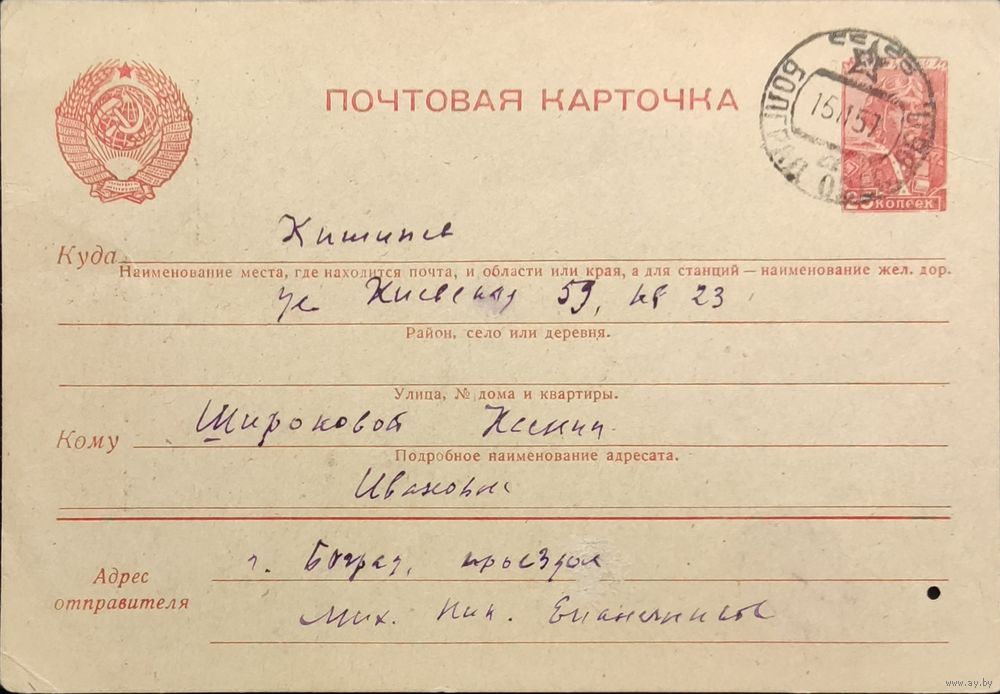 ПОЧТОВАЯ КАРТОЧКА
15 57
25 КОПЕЕК
Кишинев
Куда
Наименование места, где находится почта, и области или края, а для станций — наименование жел. дор.
ул Киевская 59, кв 23
Район, село или деревня.
Улица, № дома и квартиры.
Кому Широковой Ксении
Подробное наименование адресата.
Ивановне
Адрес отправителя
г. проездом
Мих. Ник.
www.ay.by